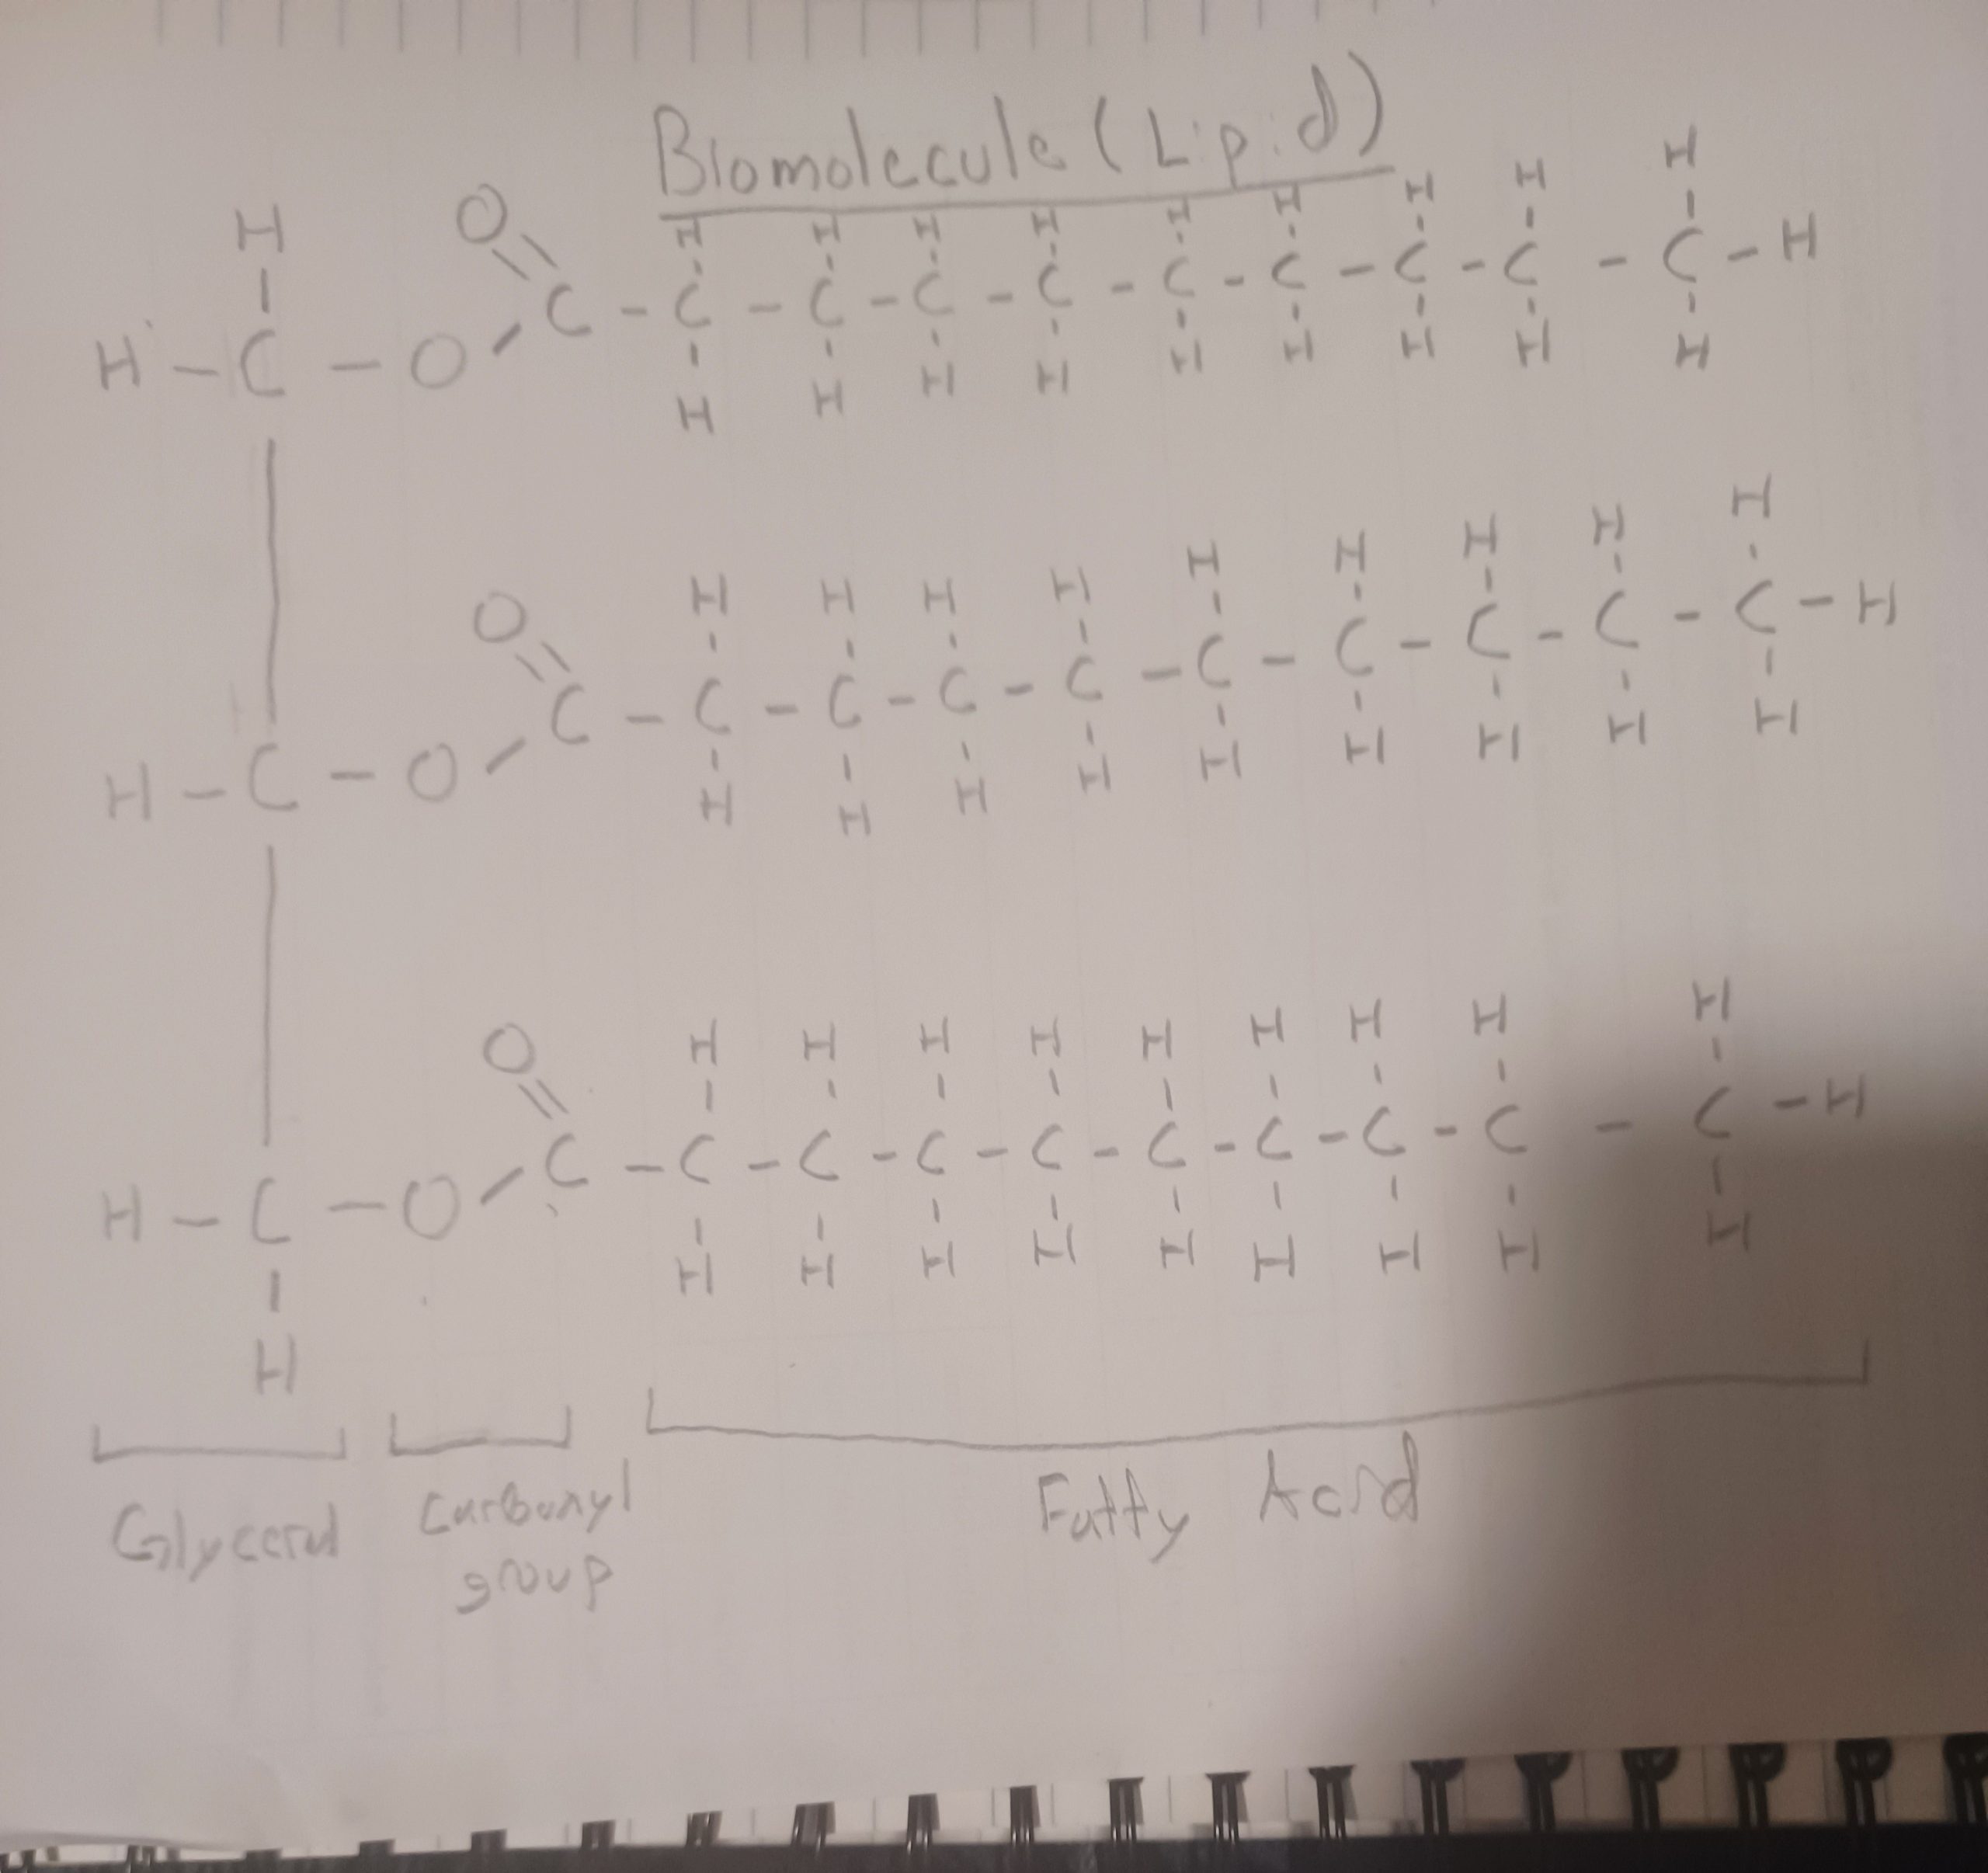 Biomolecule (Lipid)
H H H H H H H H H H
O
H - C - O - C - C - C - C - C - C - C - C - C - C - H
H H H H H H H H H
H H H H H H H H H
O
H - C - O - C - C - C - C - C - C - C - C - C - C - H
H H H H H H H H H
H H H H H H H H H
O
H - C - O - C - C - C - C - C - C - C - C - C - C - H
H H H H H H H H H
H
Glycerol Carbonyl Fatty Acid
group